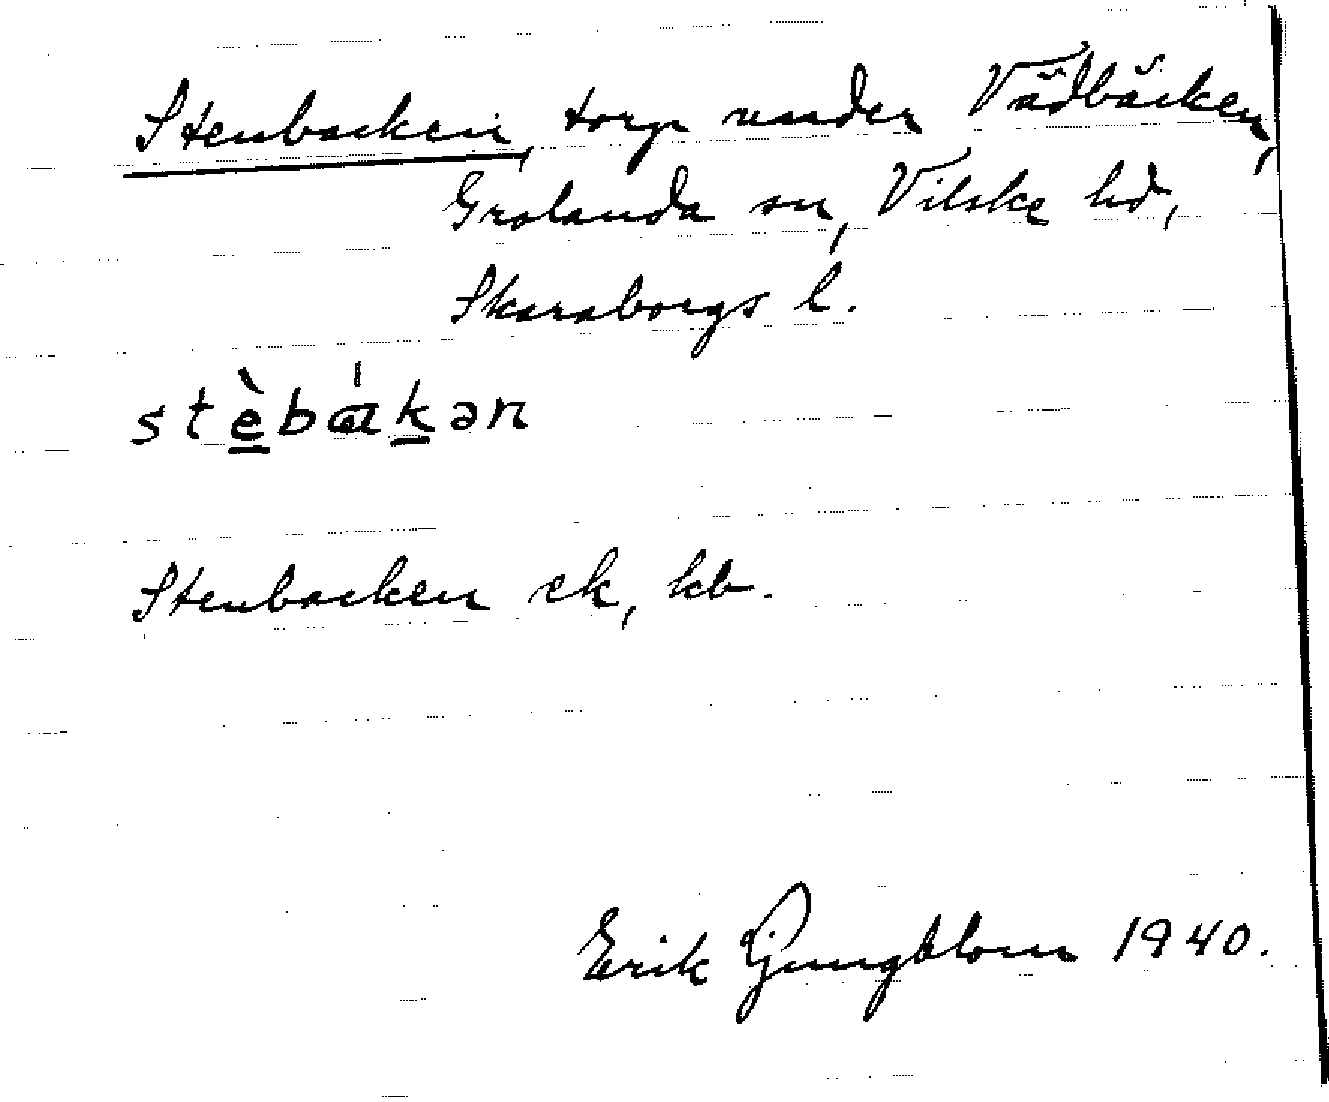 Stenbacken, torp under Vädbäcken,
Grolanda sn, Vilske hd,
Skaraborgs l.
stèba̍kən
Stenbacken ek, kb.
Erik Ljungblom 1940.